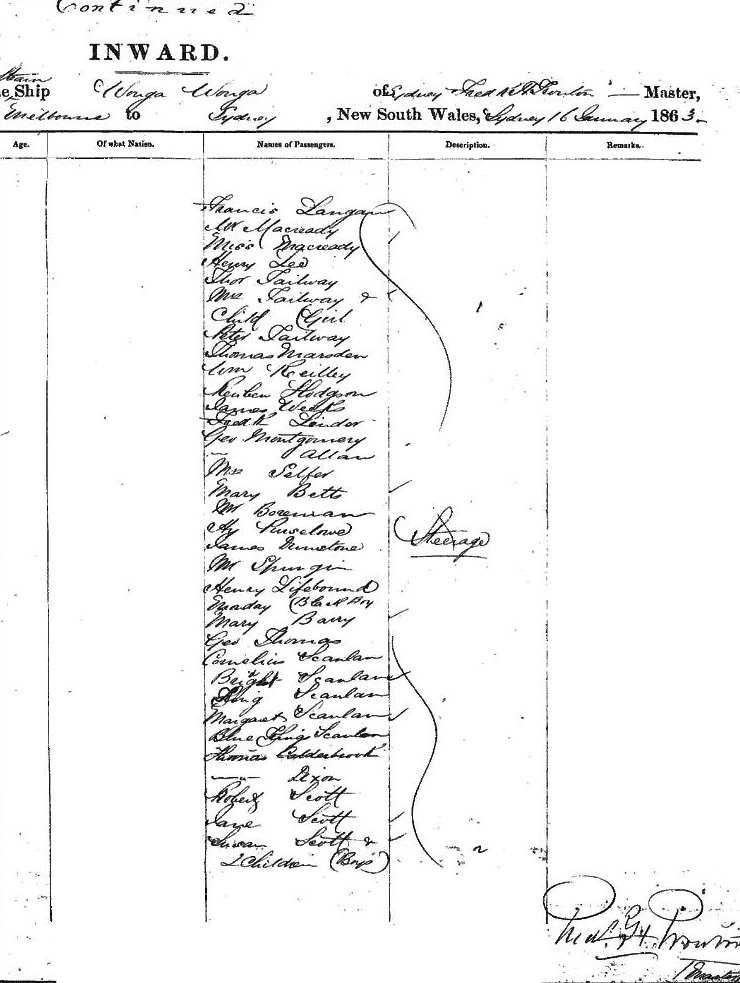 Continued
INWARD.
Ship Wonga Wonga of Sydney Fredk Master,
Melbourne to Sydney, New South Wales, Sydney 16 January 1863
Age. Of what Nation. Names of Passengers. Description. Remarks.
Francis Langan
Mr Macready
Miss Macready
Henry Lee
Thos Tailway
Mrs Tailway &
Child (Girl
Peter Tailway
Thomas Marsden
Wm Reilley
Reuben Hodgson
James Weeks
Fredk Lindor
Geo Montgomery
— Allan
Mrs Selfer
Mary Betts
Mr Boreman
Hy
James
Mr
Henry Lifebound
(Black Boy
Mary Barry
Geo Thomas
Cornelius Scanlan
Bright Scanlan
King Scanlan
Margaret Scanlan
Blue King Scanlan
Thomas Calderbrook
Dixon
Robert Scott
Jane Scott
Susan Scott &
2 Children (Boys)
Steerage
2
Fredk
Master